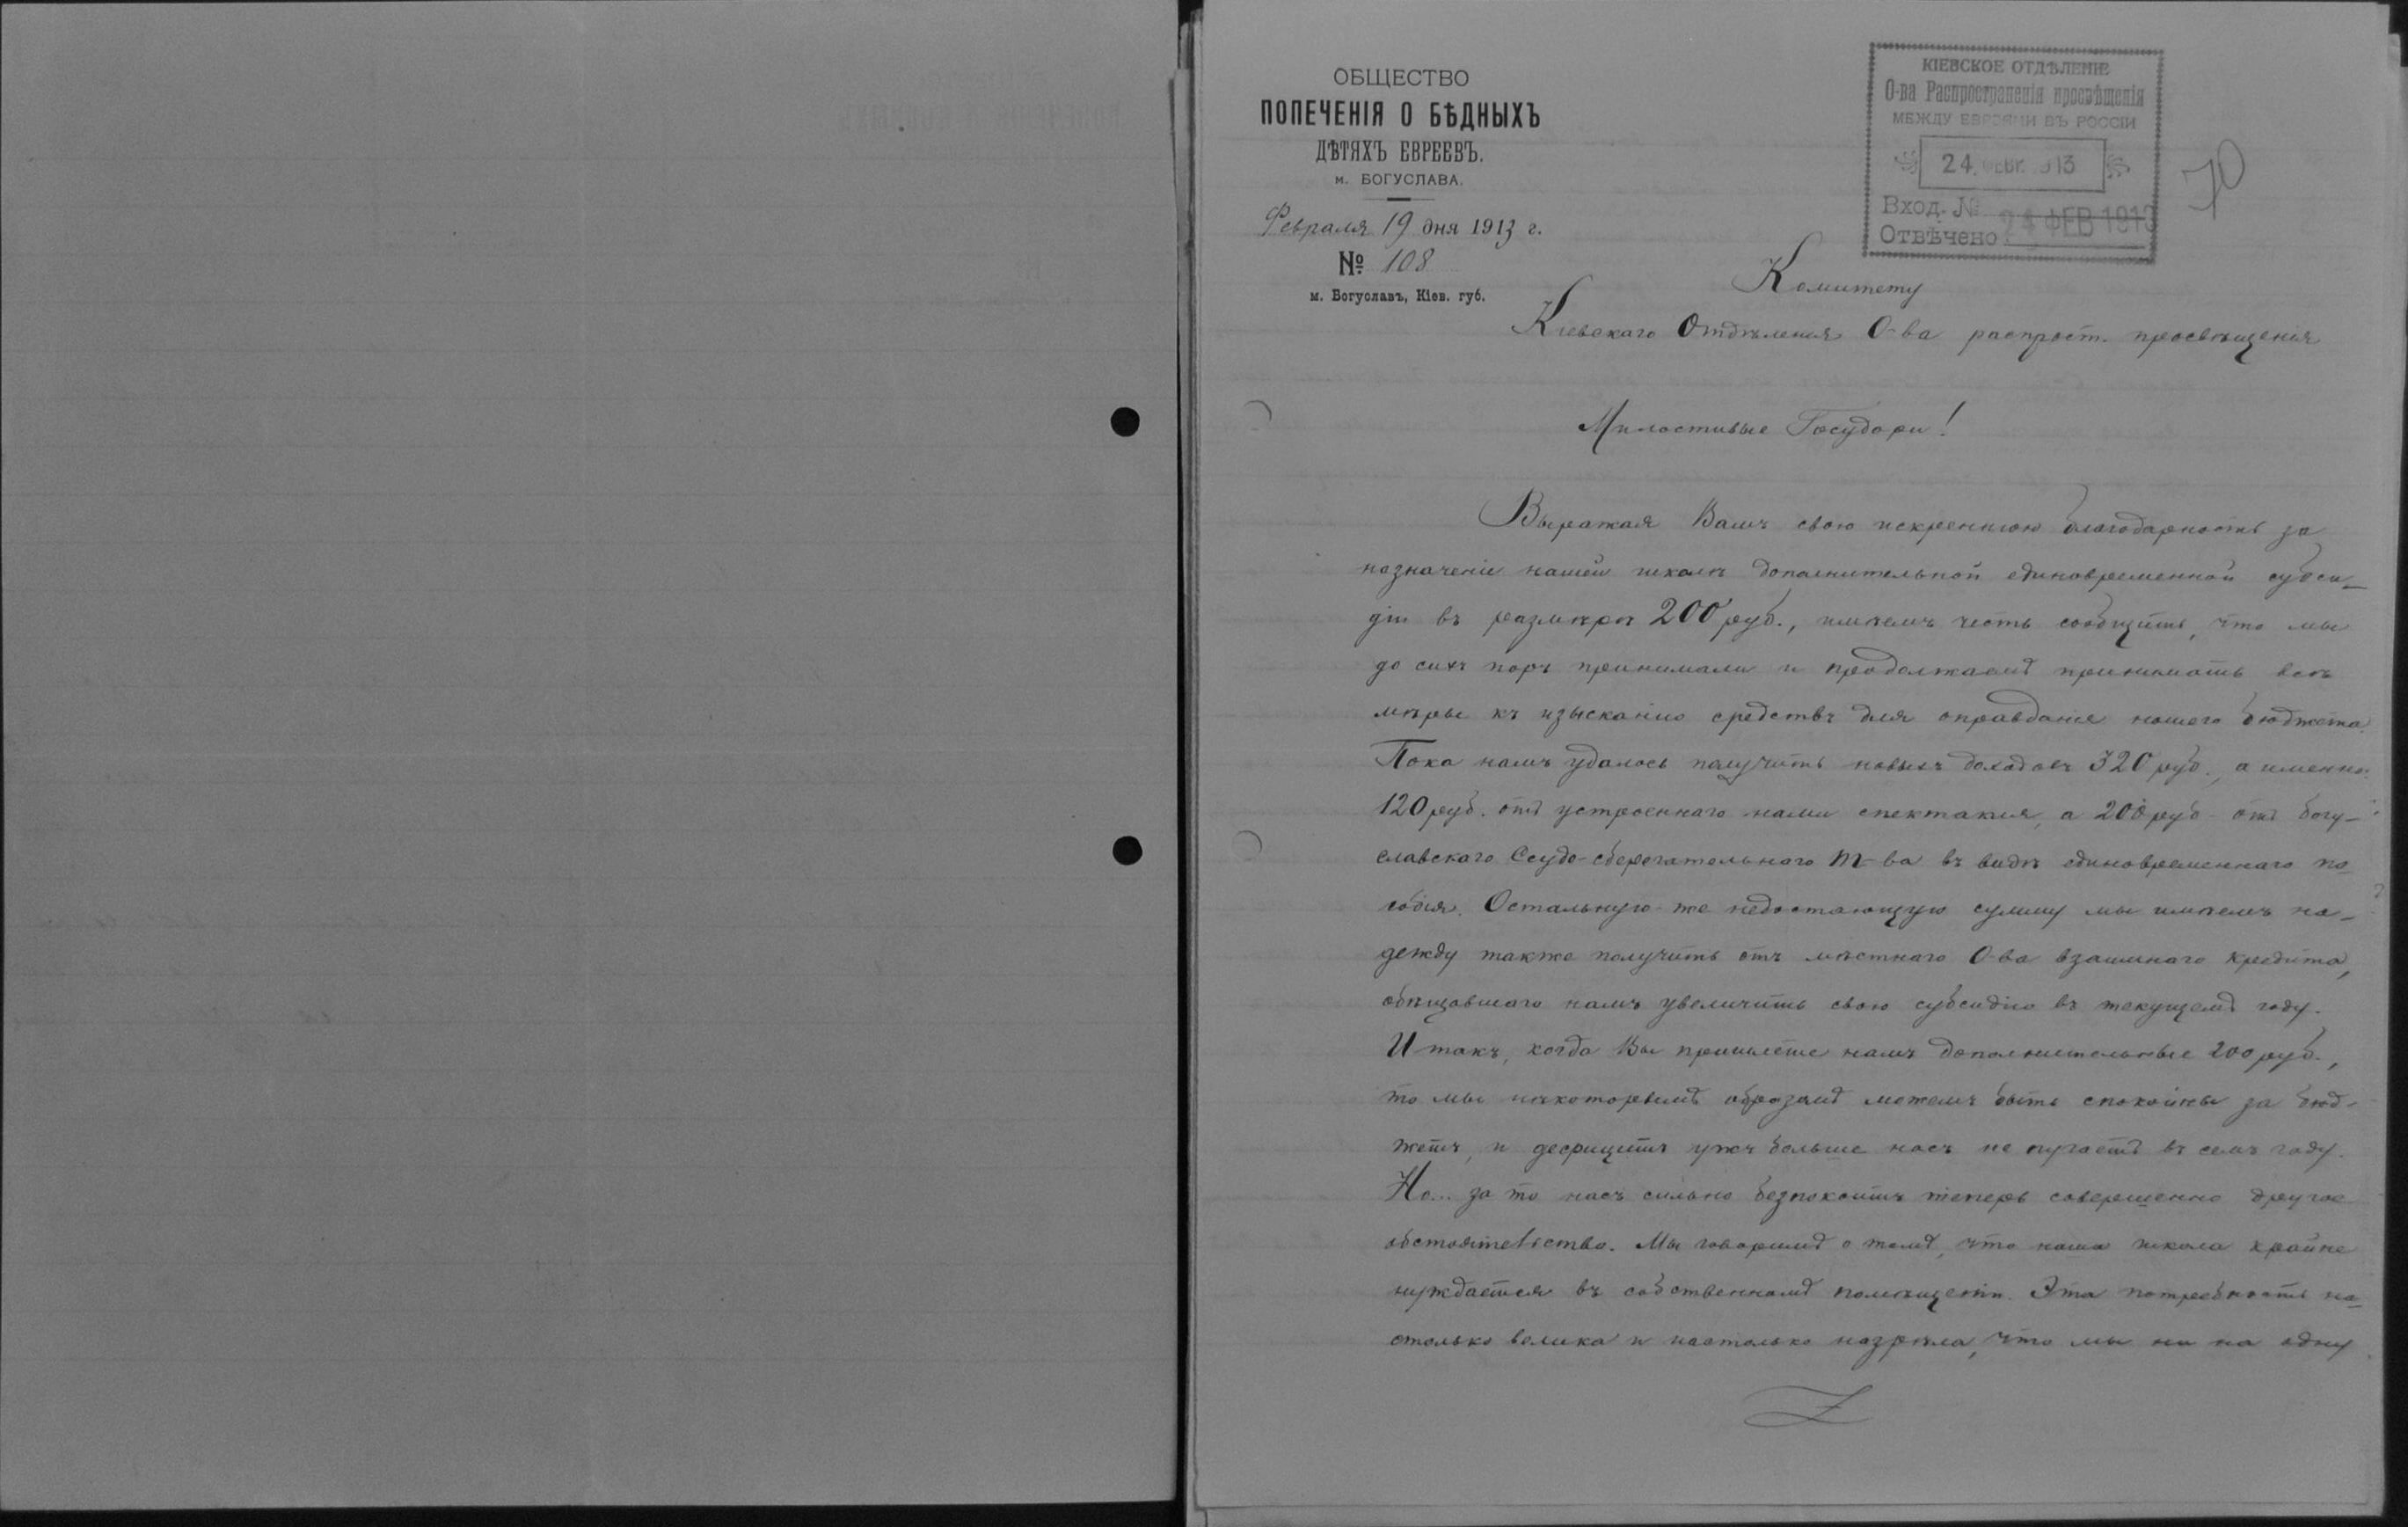 ОБЩЕСТВО
ПОПЕЧЕНІЯ О БѢДНЫХЪ
ДѢТЯХЪ ЕВРЕЕВЪ.
м. БОГУСЛАВА.
Февраля 19 дня 1913 г.
№ 108
м. Богуславъ, Кіев. губ.
КІЕВСКОЕ ОТДѢЛЕНІЕ
О-ва Распространенія просвѣщенія
МЕЖДУ ЕВРЕЯМИ ВЪ РОССІИ
24 ФЕВР. 1913
Вход. №
Отвѣчено 24 ФЕВ 1913
70
Комитету
Кіевскаго Отдѣленія О-ва распрост. просвѣщенія
Милостивые Государи!
Выражая Вамъ свою искреннюю благодарность за
назначеніе нашей школѣ дополнительной единовременной субси-
діи въ размѣрѣ 200 руб., имѣемъ честь сообщить, что мы
до сихъ поръ принимали и продолжаемъ принимать всѣ
мѣры къ изысканію средствъ для оправданія нашего бюджета.
Пока намъ удалось получить новыхъ доходовъ 320 руб., а именно:
120 руб. отъ устроеннаго нами спектакля, а 200 руб отъ богу-
славскаго Ссудо-сберегательнаго т-ва въ видѣ единовременнаго по-
собія. Остальную же недостающую сумму мы имѣемъ на-
дежду также получить отъ мѣстнаго О-ва взаимнаго кредита,
обѣщавшаго намъ увеличить свою субсидію въ текущемъ году.
И такъ, когда Вы пришлете намъ дополнительные 200 руб.,
то мы нѣкоторымъ образомъ можемъ быть спокойны за бюд-
жетъ, и дефицитъ ужъ больше насъ не пугаетъ въ семъ году.
Но... за то насъ сильно безпокоитъ теперь совершенно другое
обстоятельство. Мы говоримъ о томъ, что наша школа крайне
нуждается въ собственномъ помѣщеніи. Эта потребность на-
столько велика и настолько назрѣла, что мы ни на одну